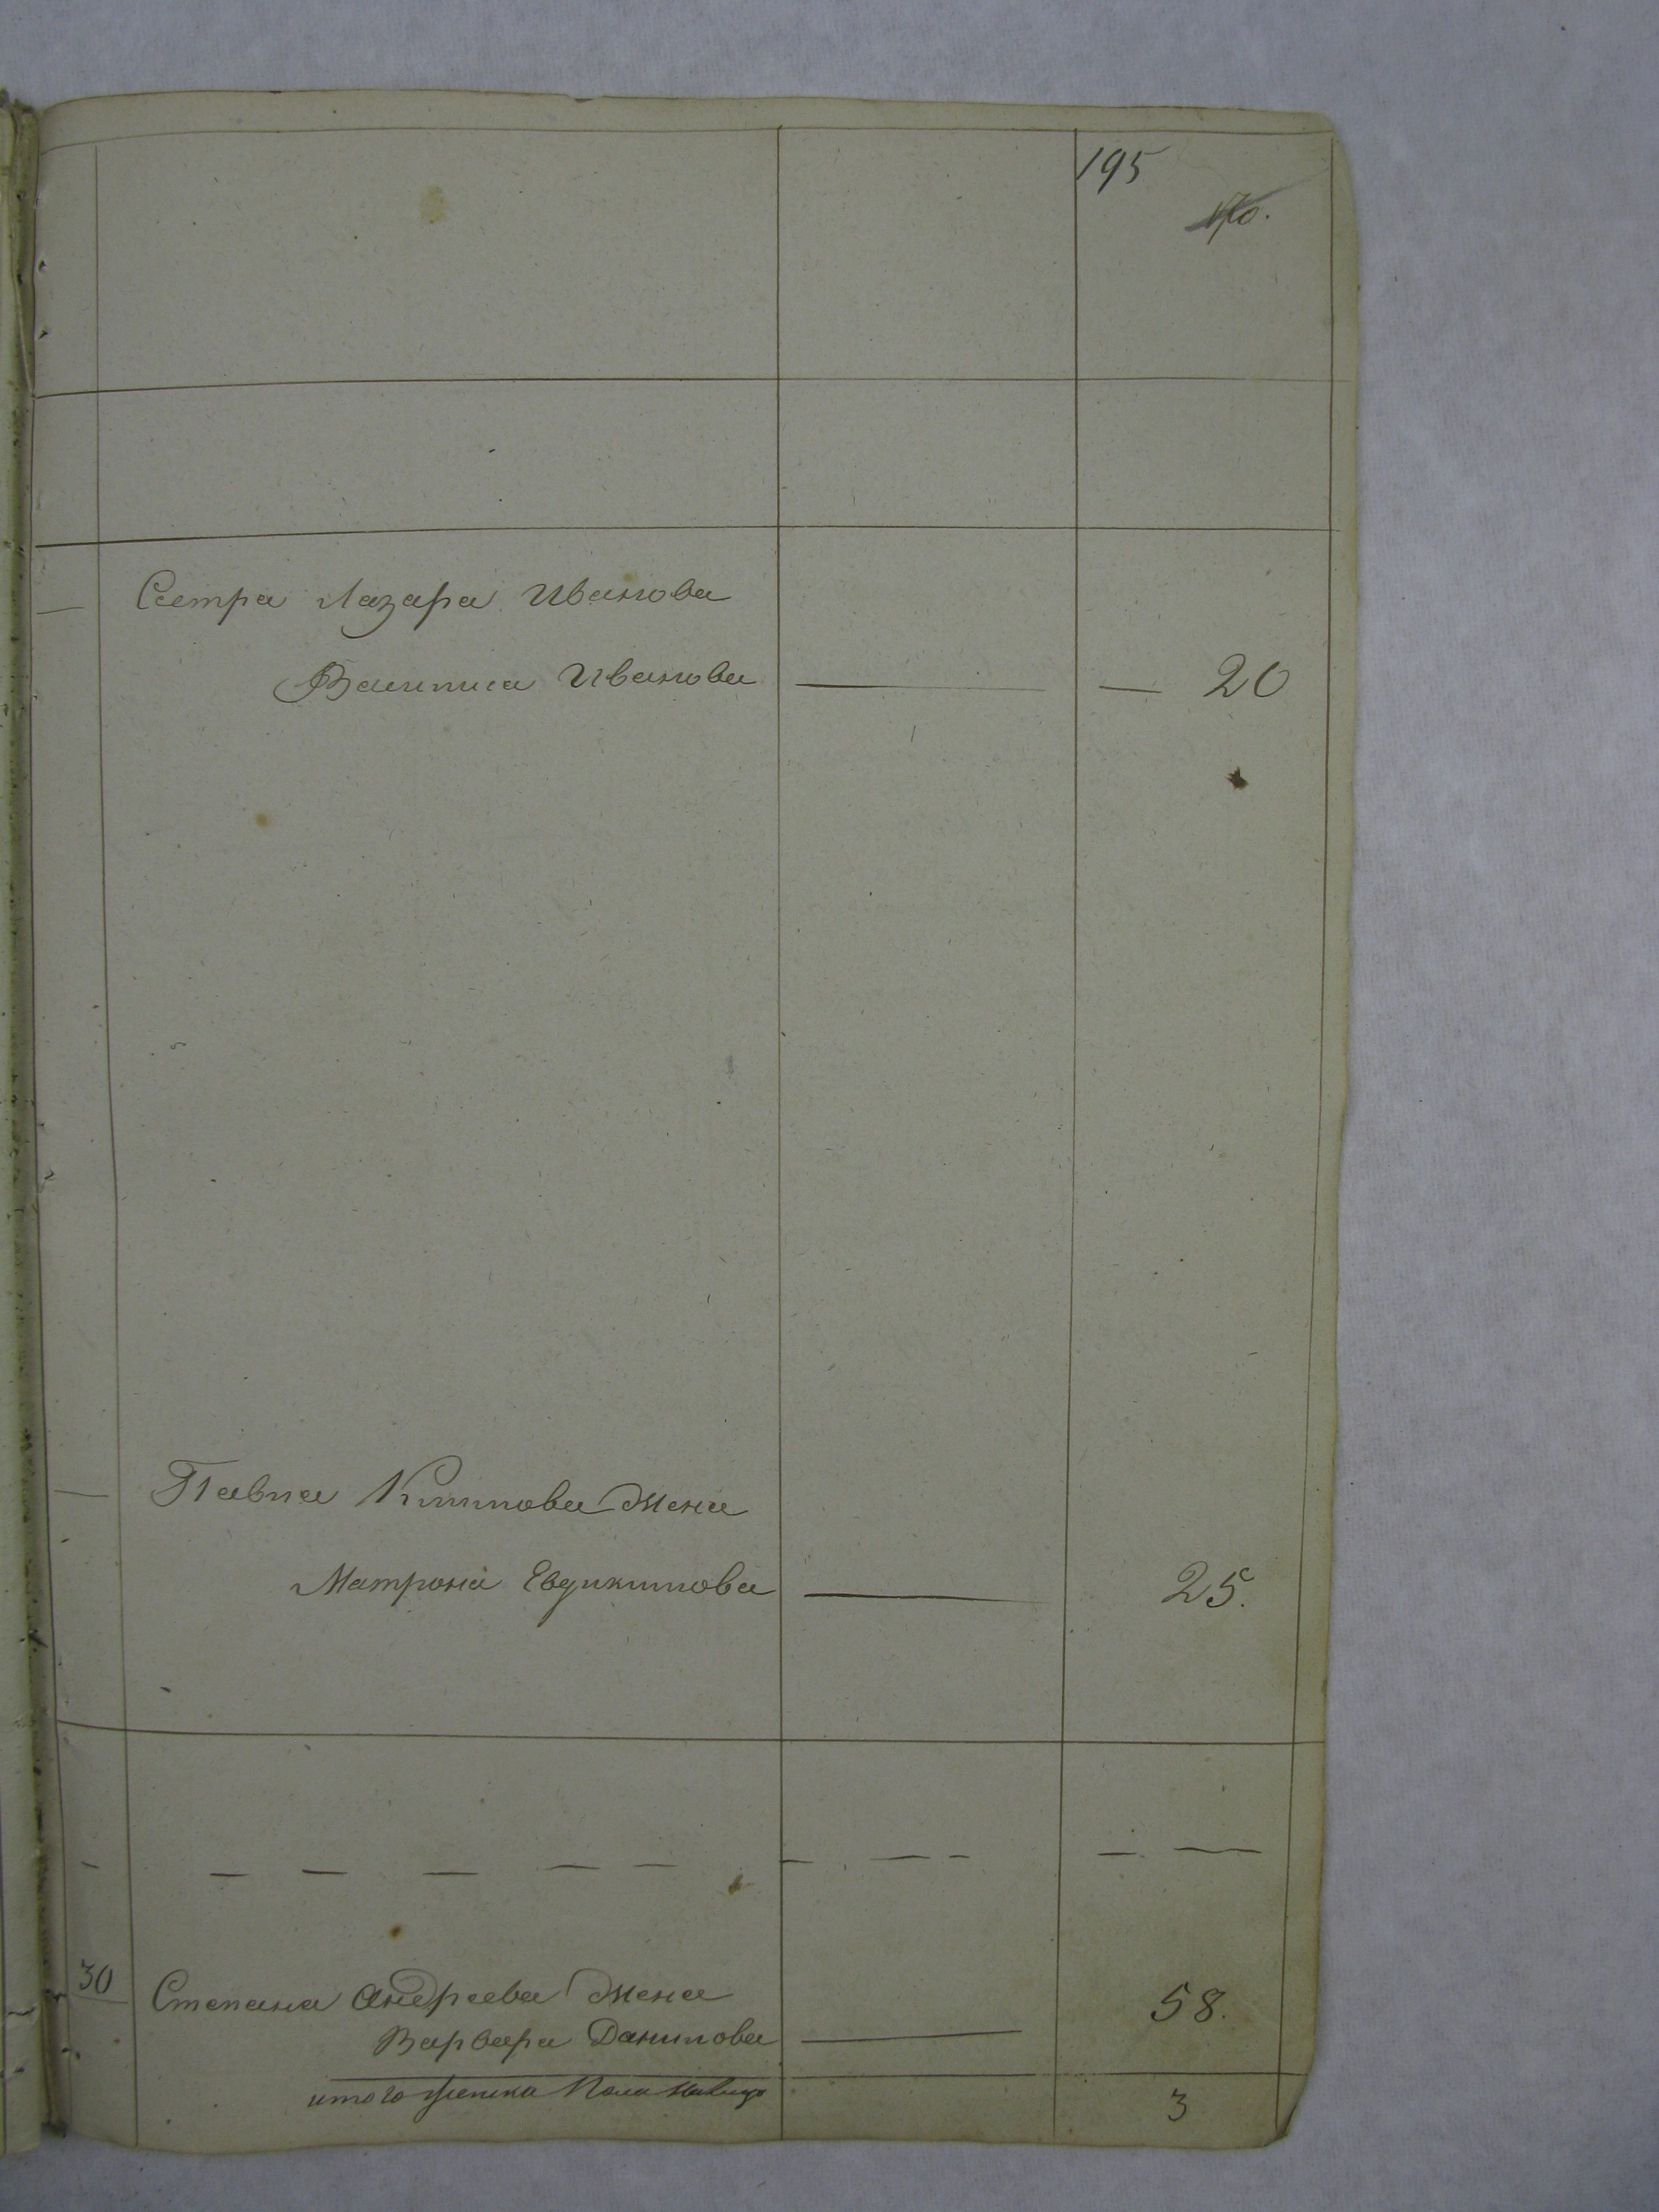 195
Сестра Лазара Иванова
Василиса Иванова — — 20
Павла Климова жена
Матрона Евдикимова — 25.
— — — — — — — — — — —
30 Степана Андреева жена
Варвара Данилова — 58.
итого женска пола налицо 3